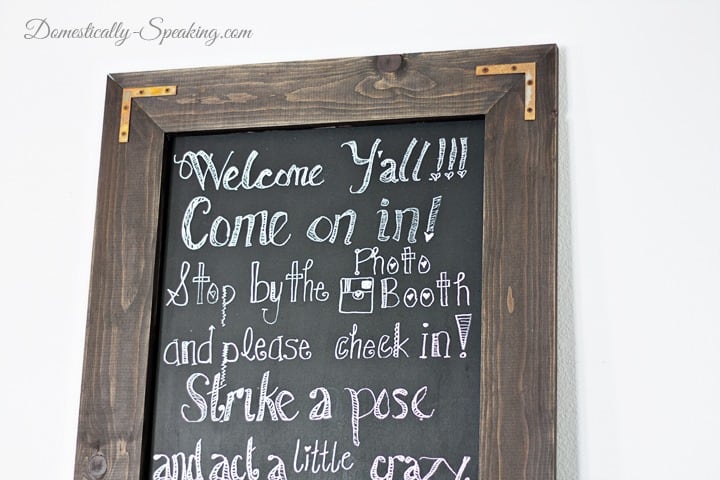 Domestically-Speaking.com
Welcome Y'all!!!
Come on in!
Stop by the Photo Booth
and please check in!
Strike a pose
and act a little crazy.